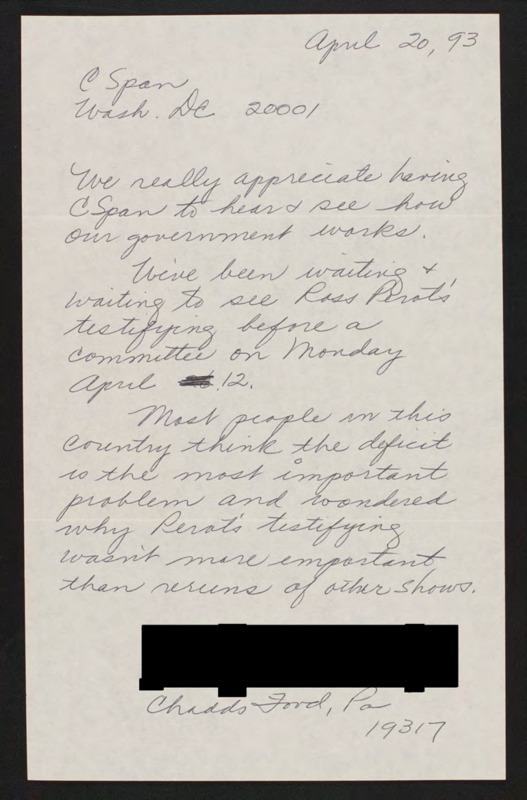 April 20, 93
C Span
Wash. DC 20001
We really appreciate having
CSpan to hear & see how
our government works.
We've been waiting &
waiting to see Ross Perot's
testifying before a
committee on Monday
April 12.
Most people in this
country think the deficit
is the most important
problem and wondered
why Perot's testifying
wasn't more important
than reruns of other shows.
Chadds Ford, Pa
19317